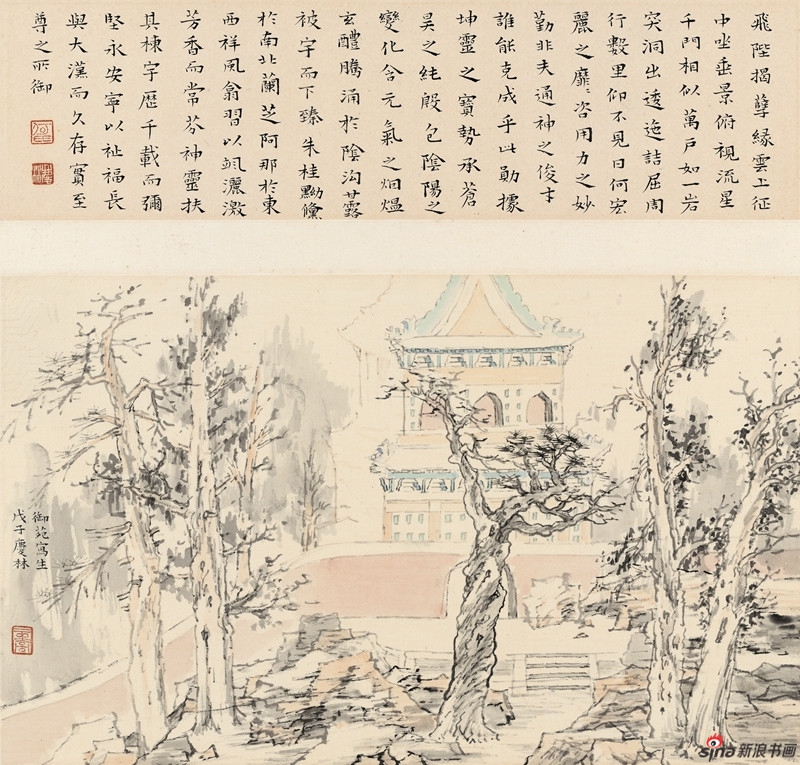 飛陛揭孽緣雲上征
中坐垂景俯視流星
千門相似萬戶如一岩
突洞出逶迤詰屈周
行數里仰不見日何宏
麗之靡〻咨用力之妙
勤非夫通神之俊才
誰能克成乎此勛據
坤靈之寶勢承蒼
昊之純殷包陰陽之
變化含元氣之烟熅
玄醴騰涌於陰溝甘露
被宇而下臻朱桂黝儵
於南北蘭芝阿那於東
西祥風翕習以颯灑激
芳香而常芬神靈扶
其棟宇歷千載而彌
堅永安寧以祉福長
與大漢而久存實至
尊之所御
御苑寫生
戊子慶林
sina新浪书画